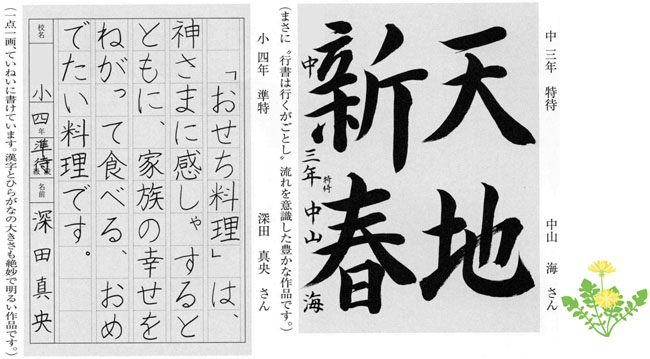 中 三年　特待　中山　海 さん
天地
新春
中三年 特待 中山 海
(まさに〝行書は行くがごとし〟流れを意識した豊かな作品です。)
小 四年　準特　深田　真央 さん
「おせち料理」は、
神さまに感しゃすると
ともに、家族の幸せを
ねがって食べる、おめ
でたい料理です。
校名 小 四年 準待 名前 深田真央
(一点一画、ていねいに書けています。漢字とひらがなの大きさも絶妙で明るい作品です。)